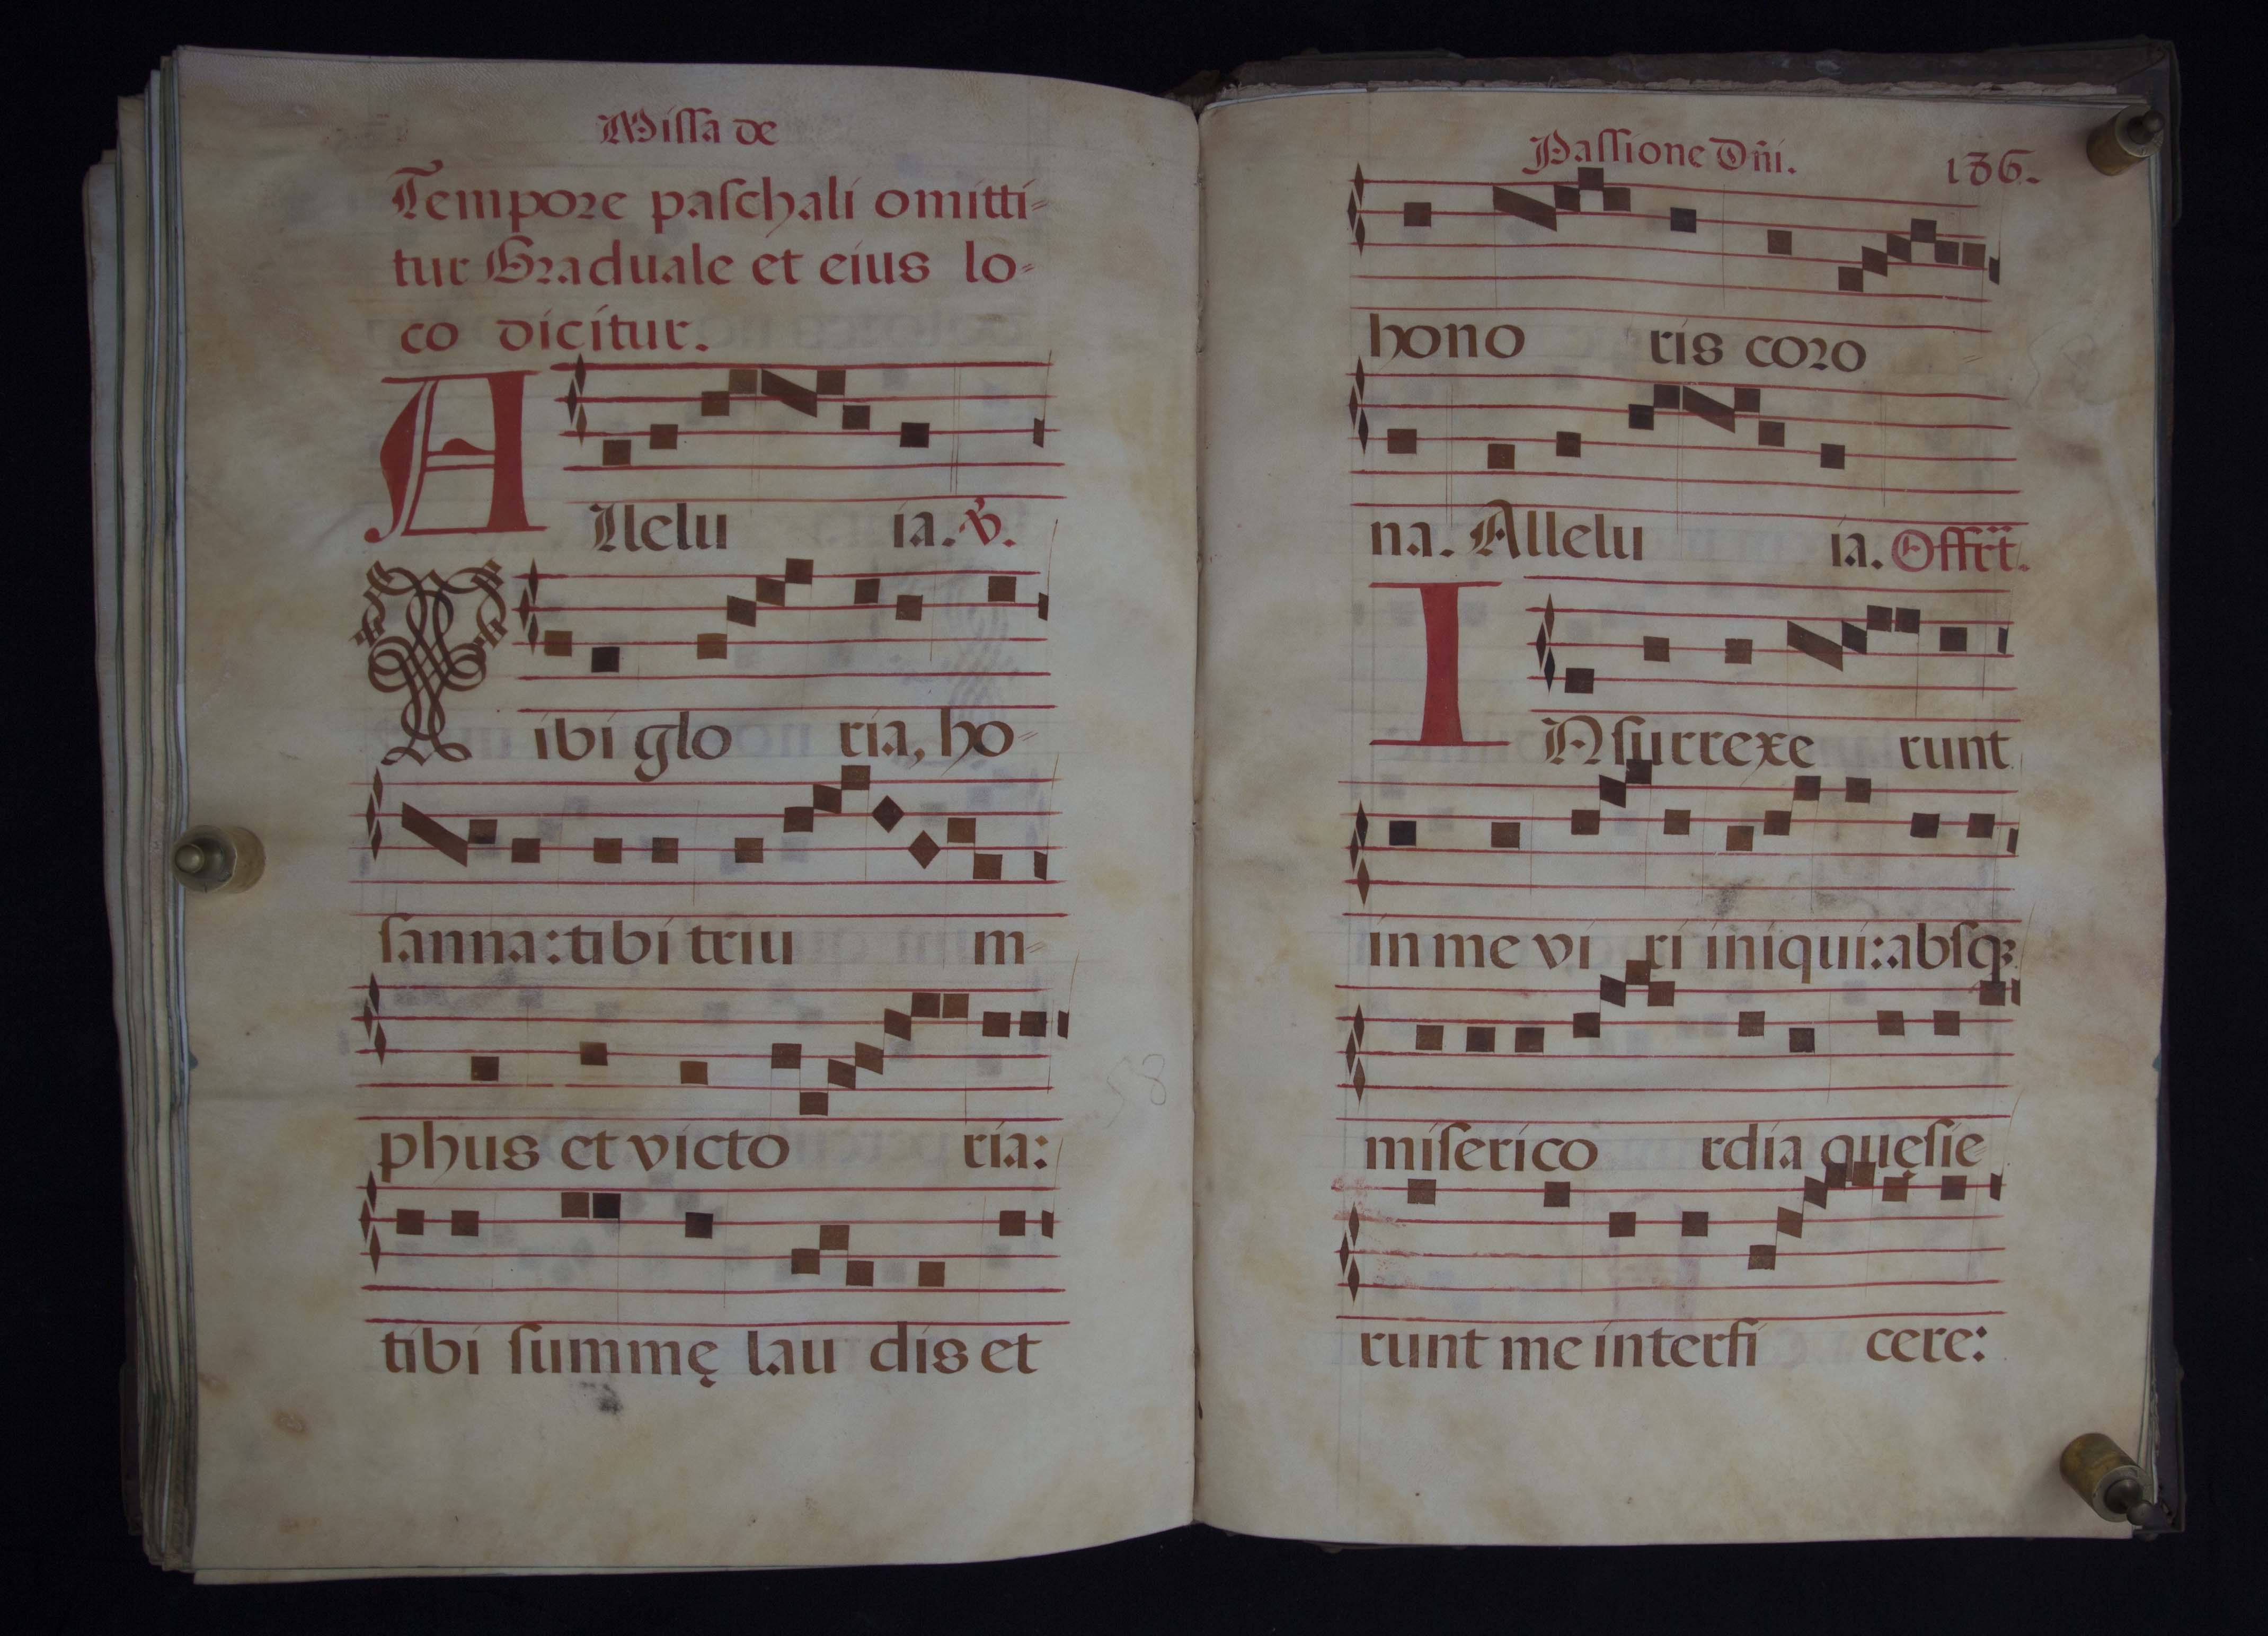 Missa de
Tempore paschali omitti=
tur Graduale et eius lo=
co dicitur.
Allelu ia. ℣.
Tibi glo ria, ho=
sanna: tibi triu m=
phus et victo ria:
tibi summę lau dis et
Passione Dñi. 136.
hono ris coro =
na. Allelu ia. Offrt.
INsurrexe runt
in me vi ri iniqui: absqꝫ
miserico rdia quęsie=
runt me interfi cere:
58